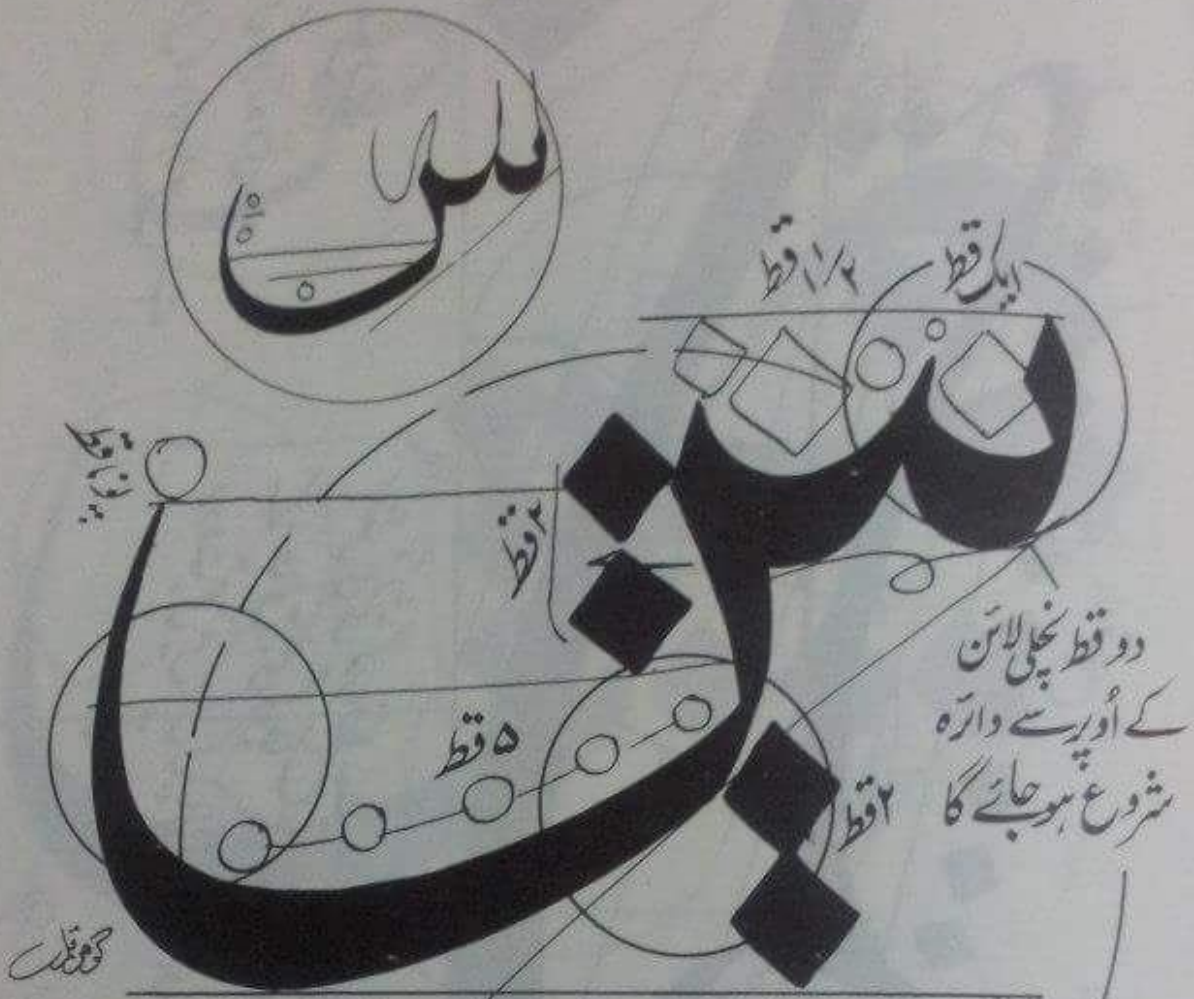 س
ایک قط
۱ ۱/۲ قط
س
۲ قط
۵ قط
۲ قط
دو قط نچلی لائن
کے اُوپر سے دائرہ
شروع ہو جائے گا